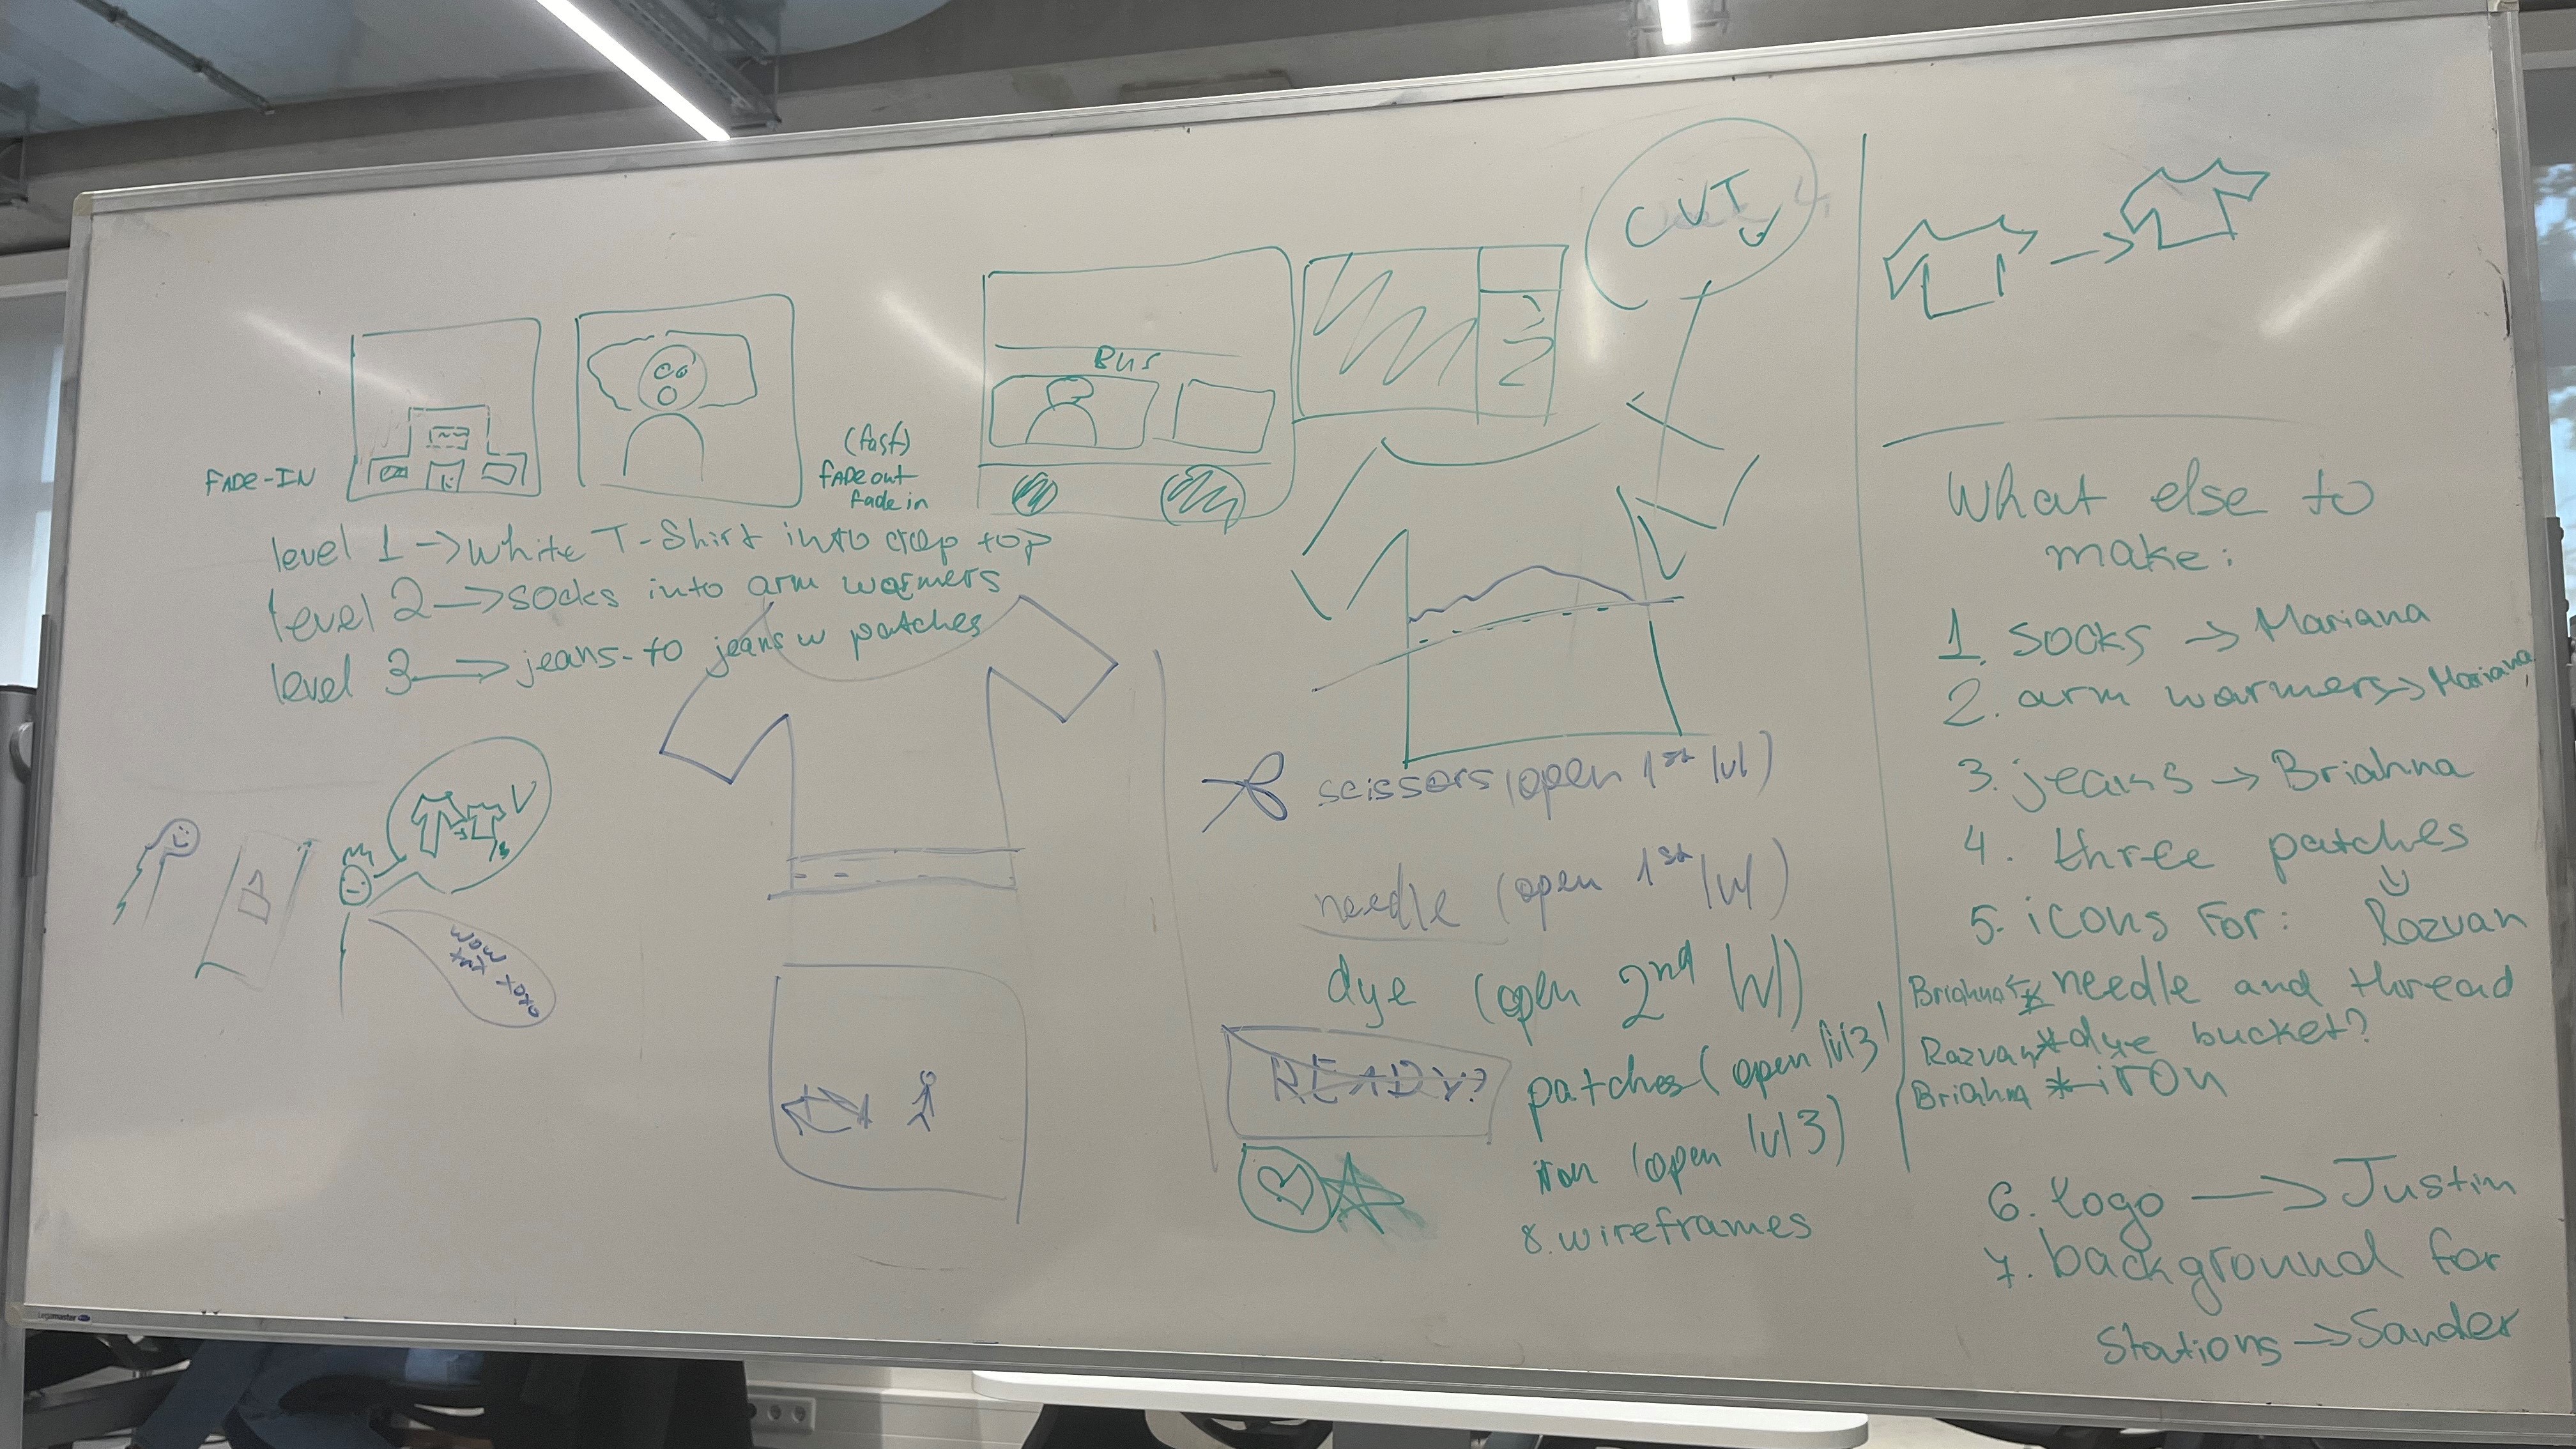 CUT
BUS
FADE-IN
(fast)
FADE out
fade in
level 1 -> white T-Shirt into crop top
level 2 -> socks into arm warmers
level 3 -> jeans - to jeans w patches
mom
xoxo
scissors (open 1st lvl)
needle (open 1st lvl)
dye (open 2nd lvl)
READY?
patches (open lvl3)
iron (open lvl 3)
8. wireframes
What else to
make:
1. socks -> Mariana
2. arm warmers -> Mariana
3. jeans -> Briahna
4. three patches
-> Razvan
5. icons for:
Briahna * needle and thread
Razvan * dye bucket?
Briahna * iron
6. logo -> Justin
7. background for
stations -> Sander
Legamaster